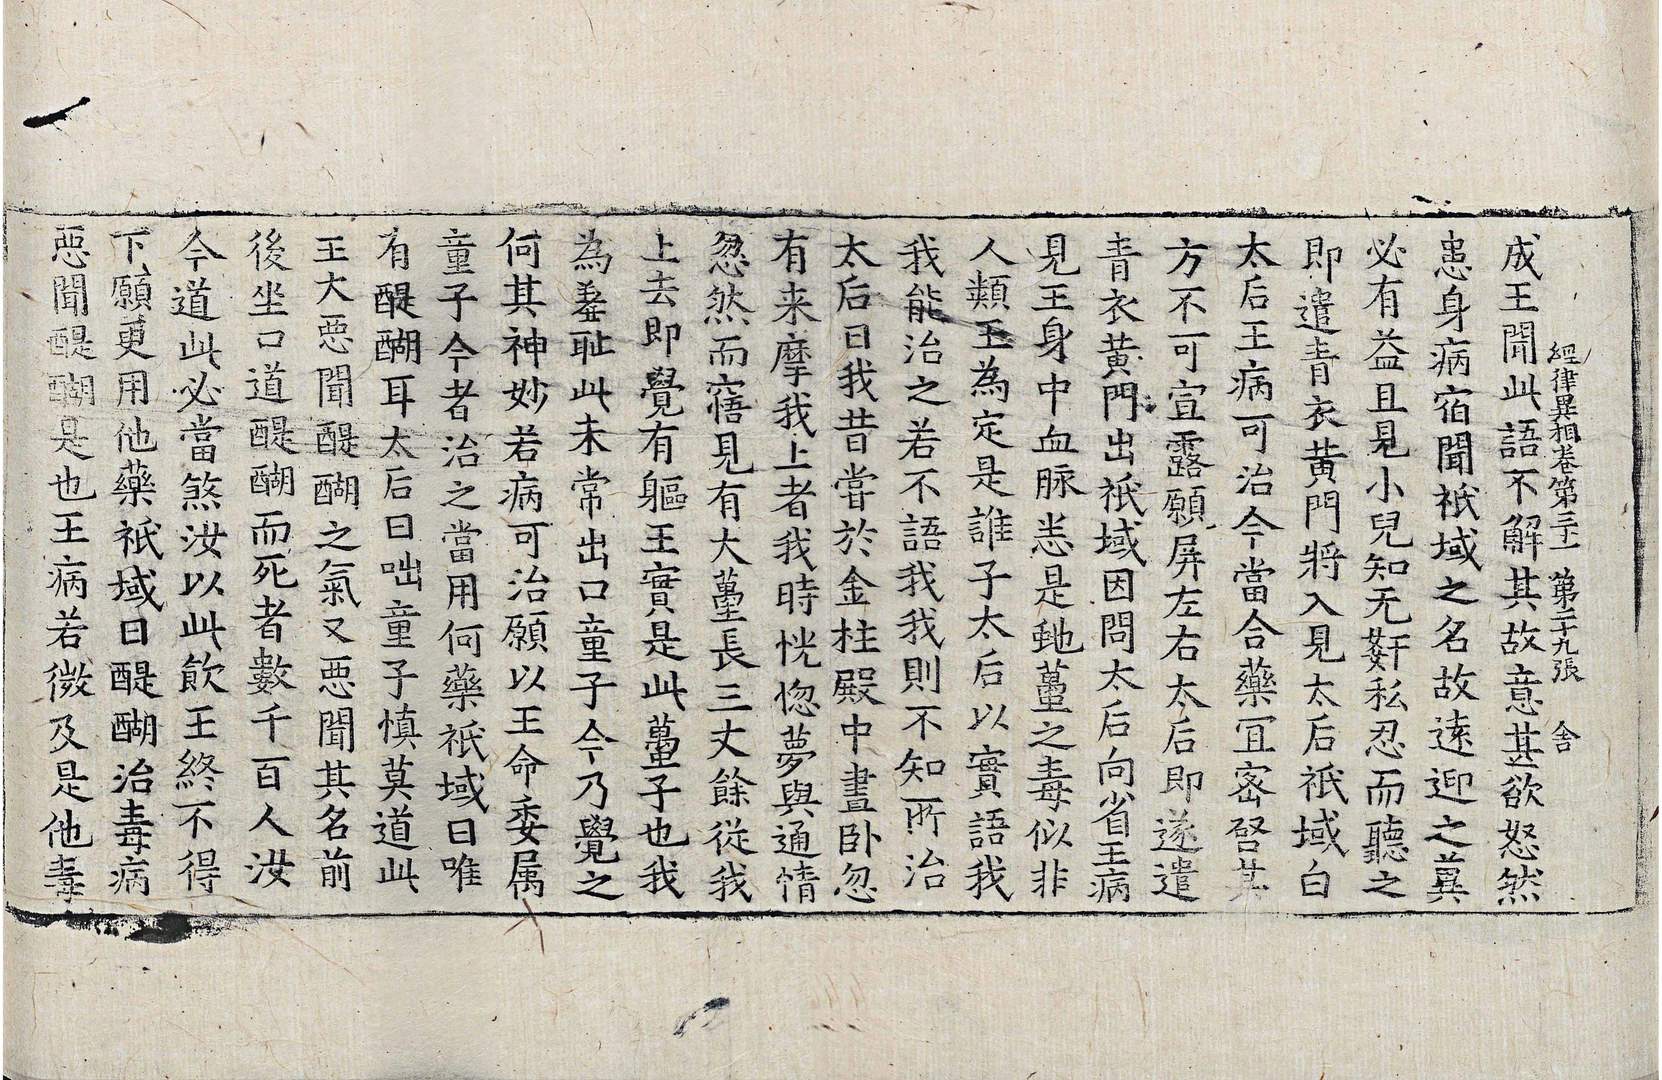 經律異相卷第三十一 第二十九張 舍
成王聞此語不解其故意甚欲怒然
患身病宿聞祇域之名故遠迎之兾
必有益且見小兒知无姧私忍而聽之
即遣青衣黄門將入見太后祇域白
太后王病可治今當合藥冝宻啓其
方不可宣露願屏左右太后即遂遣
青衣黄門出祇域因問太后向省王病
見王身中血脉悉是虵蠆之毒似非
人類王為定是誰子太后以實語我
我能治之若不語我我則不知所治
太后曰我昔甞於金柱殿中晝卧忽
有来摩我上者我時恍惚夢與通情
忽然而寤見有大蠆長三丈餘從我
上去即覺有軀王實是此蠆子也我
為羞耻此未常出口童子今乃覺之
何其神妙若病可治願以王命委属
童子今者治之當用何藥祇域曰唯
有醍醐耳太后曰咄童子慎莫道此
王大惡聞醍醐之氣又惡聞其名前
後坐口道醍醐而死者數千百人汝
今道此必當煞汝以此飲王終不得
下願更用他藥祇域曰醍醐治毒病
惡聞醍醐是也王病若微及是他毒